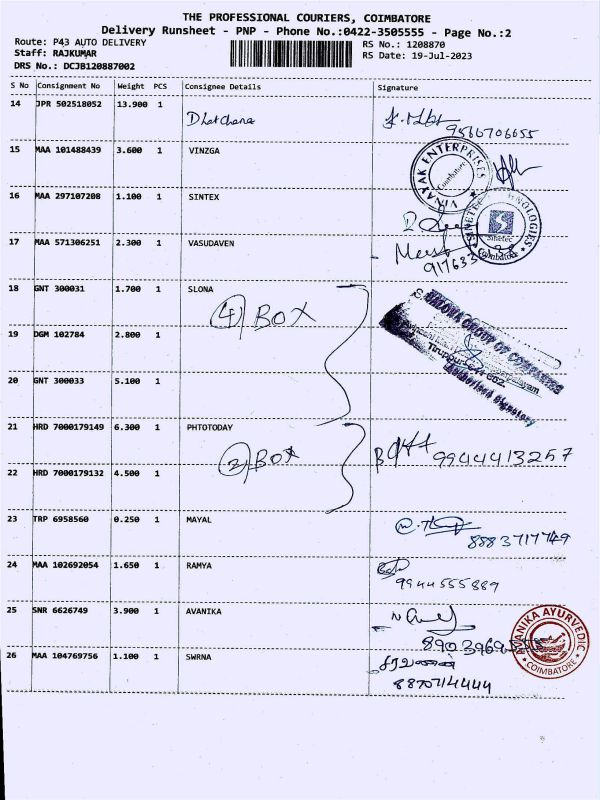 THE PROFESSIONAL COURIERS, COIMBATORE
Delivery Runsheet - PNP - Phone No.:0422-3505555 - Page No.:2
Route: P43 AUTO DELIVERY
RS No.: 1208870
Staff: RAJKUMAR
RS Date: 19-Jul-2023
DRS No.: DCJB120887002
S No Consignment No Weight PCS Consignee Details Signature
14 JPR 502518052 13.900 1 Dhatchana
9566706655
15 MAA 101488439 3.600 1 VINZGA
VINAYAK ENTERPRISES
Coimbatore
16 MAA 297107208 1.100 1 SINTEX
Sinetec
Coimbatore
17 MAA 571306251 2.300 1 VASUDAVEN
18 GNT 300031 1.700 1 SLONA
4 BOX
GROUP OF COMPANIES
Authorised Signatory
19 DGM 102784 2.800 1
20 GNT 300033 5.100 1
21 HRD 7000179149 6.300 1 PHTOTODAY
2 BOX
9944413257
22 HRD 7000179132 4.500 1
23 TRP 6958560 0.250 1 MAYAL
8883717749
24 MAA 102692054 1.650 1 RAMYA
9944555889
25 SNR 6626749 3.900 1 AVANIKA
AVANIKA AYURVEDIC
COIMBATORE
26 MAA 104769756 1.100 1 SWRNA
சரவணன்